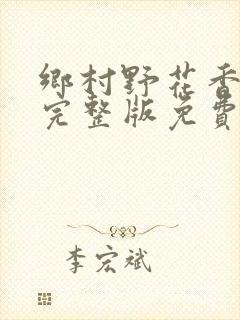 鄉村野花香
完整版免費
李宏斌